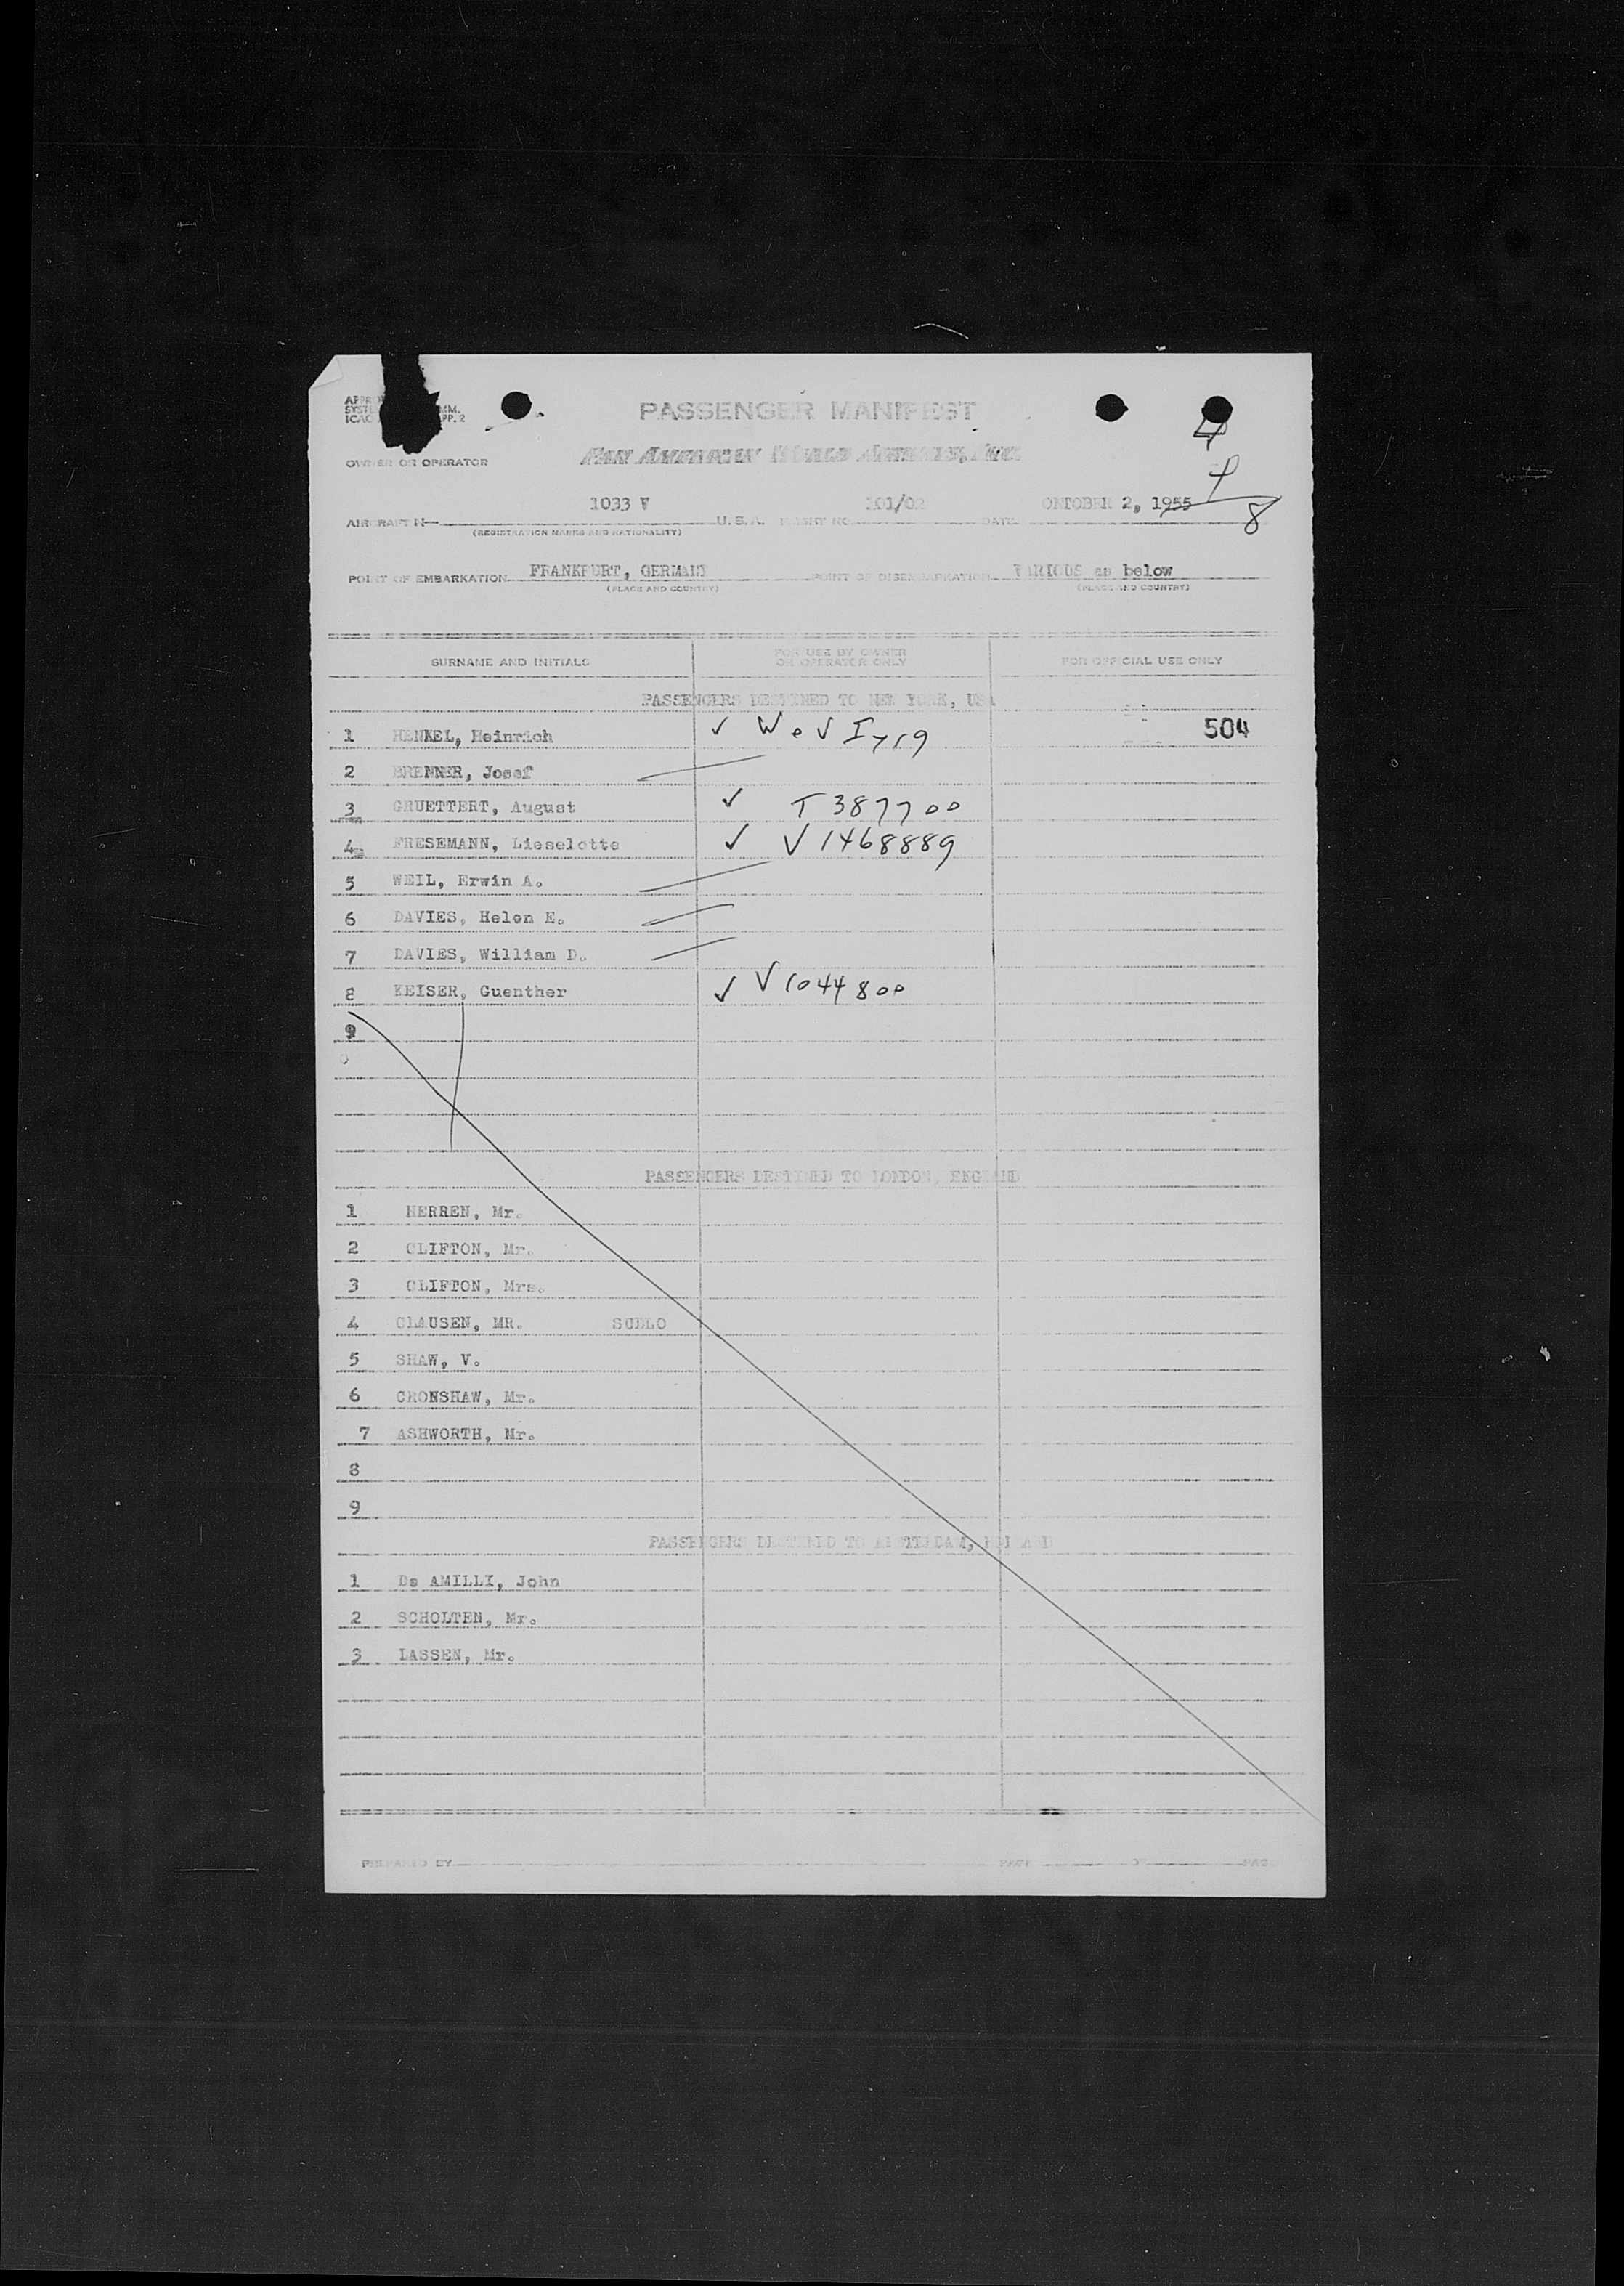 PASSENGER MANIFEST
4
OWNER OR OPERATOR PAN AMERICAN WORLD AIRWAYS, INC
4
8
AIRCRAFT N 1033 V U.S.A. FLIGHT NO. 101/02 DATE ONTOBER 2, 1955
(REGISTRATION MARKS AND NATIONALITY)
POINT OF EMBARKATION FRANKFURT, GERMANY POINT OF DISEMBARKATION VARIOUS as below
(PLACE AND COUNTRY) (PLACE AND COUNTRY)
SURNAME AND INITIALS FOR USE BY OWNER OR OPERATOR ONLY FOR OFFICIAL USE ONLY
PASSENGERS DESTINED TO NEW YORK, USA
1 HENKEL, Heinrich 504
2 BRENNER, Josef
3 GRUETTERT, August ✓ T 387700
4 FRESEMANN, Lieselotte ✓ V1468889
5 WEIL, Erwin A.
6 DAVIES, Helen E.
7 DAVIES, William D.
8 KEISER, Guenther ✓ V1044800
9
PASSENGERS DESTINED TO LONDON, ENGLAND
1 HERREN, Mr.
2 CLIFTON, Mr.
3 CLIFTON, Mrs.
4 CLAUSEN, MR.
5 SHAW, V.
6 CRONSHAW, Mr.
7 ASHWORTH, Mr.
8
9
PASSENGERS DESTINED TO AMSTERDAM, HOLLAND
1 De AMILLI, John
2 SCHOLTEN, Mr.
3 LASSEN, Mr.
PREPARED BY PAGE OF PAGE